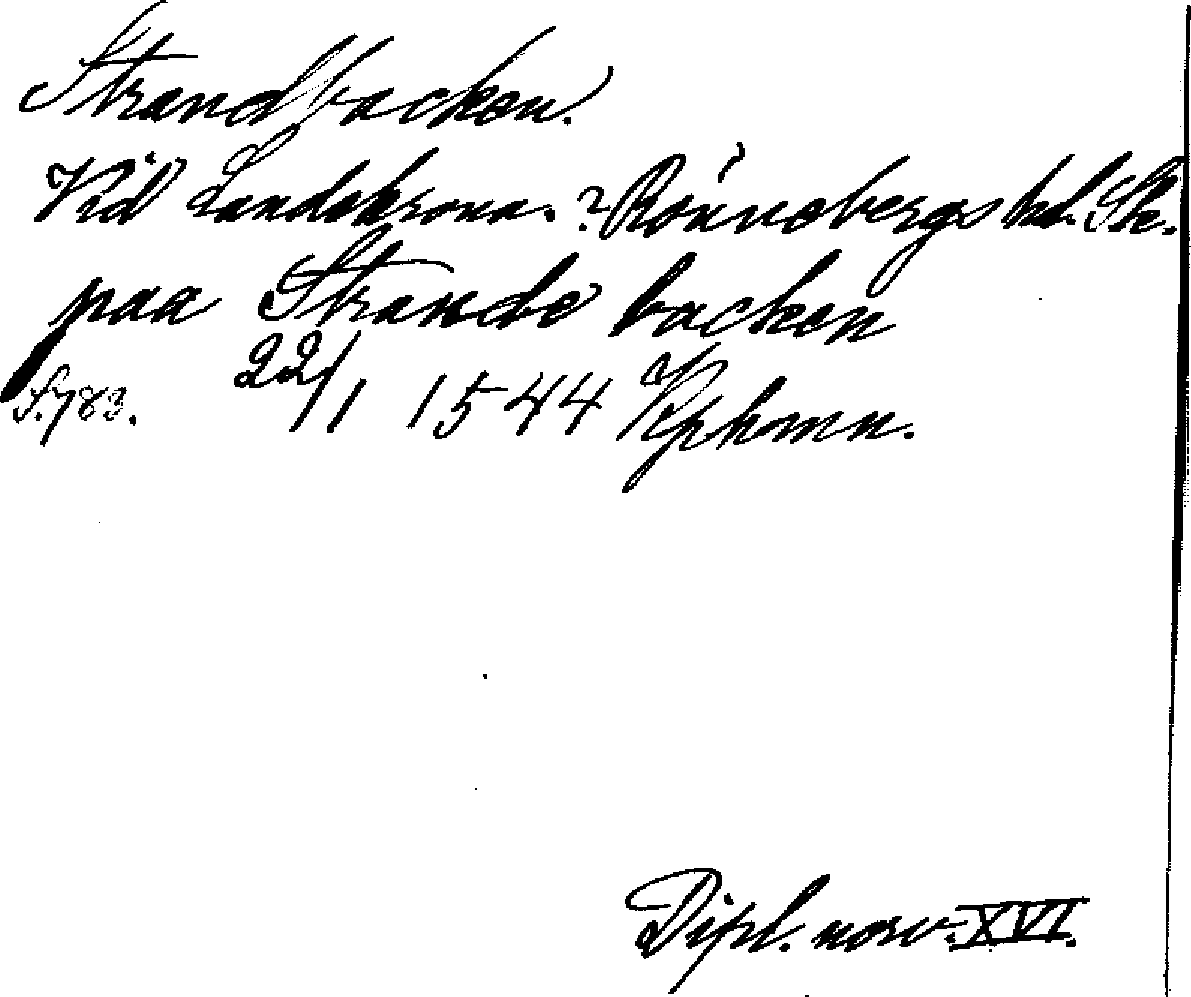 Strandbacken.
Vid Landskrona. ? Rönnebergs hd. Sk.
paa Strande backen
S. 783. 22/1 1544 Kphmn.
Dipl. norv. XVI.